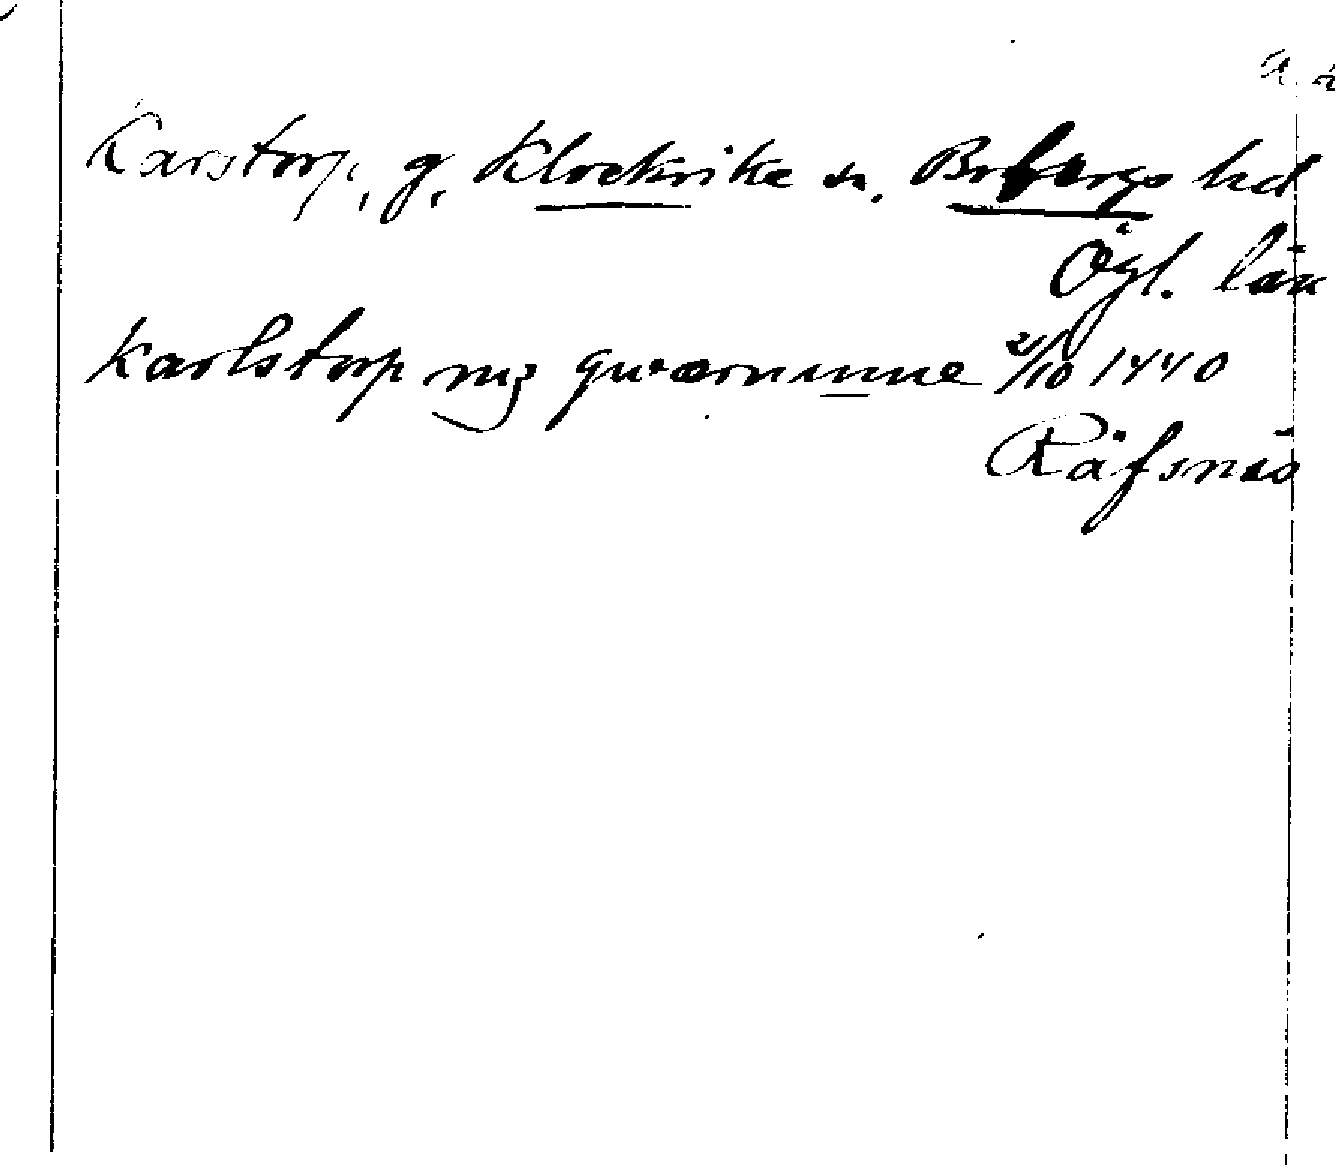 Karstorp, g. Klockrike sn. Bobergs hd
Ögl. län
Karlstorp mz qwærnenne 2/10 1440
Räfsnäs